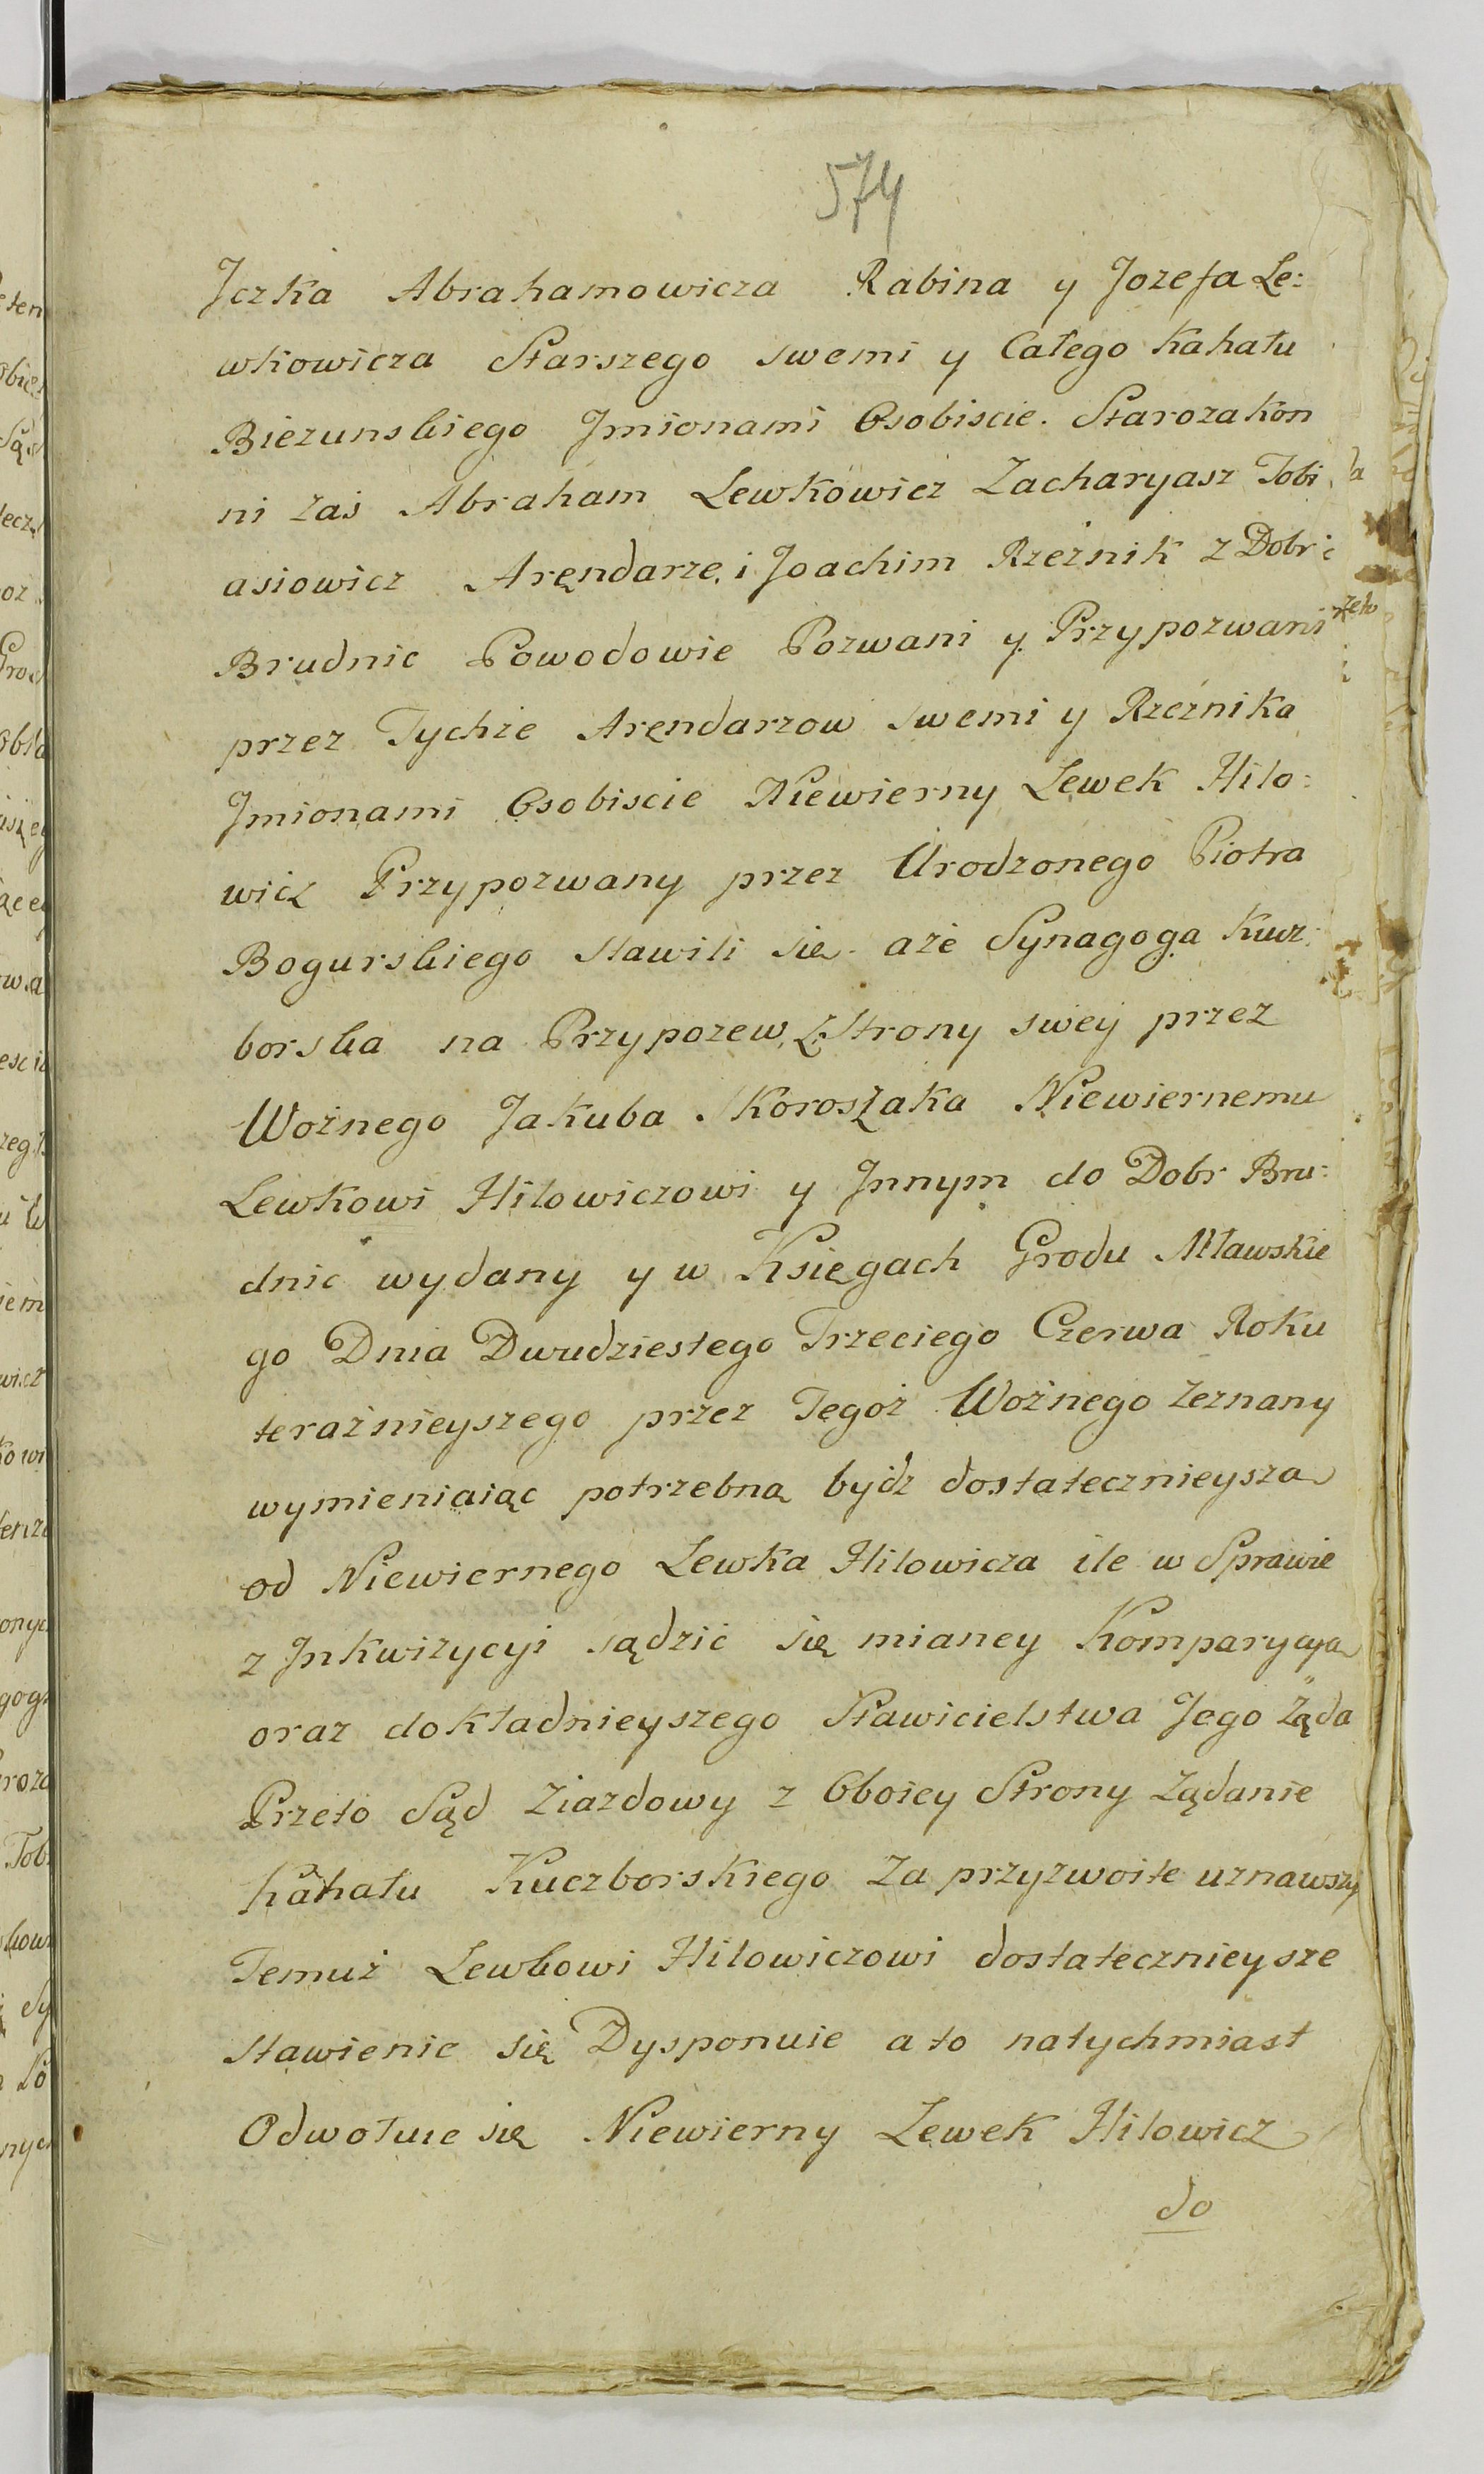 574
Jczka Abrahamowicza Rabina y Jozefa Le:
wkowicza Starszego swemi y Całego Kahału
Biezunskiego Jmionami Osobiscie. Starozakon
ni zaś Abraham Lewkowicz Zacharyasz Tobi
asiowicz Aręndarze, i Joachim Rzeźnik z Dobr
Brudnic Powodowie Pozwani y Przypozwani
przez Tychże Aręndarzow swemi y Rzeźnika
Jmionami Osobiscie Niewierny Lewek Hilo:
wicz Przypozwany przez Urodzonego Piotra
Bogurskiego stawili się aże Synagoga Kucz:
borska na Przypozew z Strony swey przez
Woźnego Jakuba Skoroszaka Niewiernemu
Lewkowi Hilowiczowi y Jnnym do Dobr Bru:
dnic wydany y w Księgach Grodu Mławskie
go Dnia Dwudziestego Trzeciego Czerwa Roku
teraźnieyszego przez Tegoż Woźnego zeznany
wymieniaiąc potrzebną bydz dostatecznieyszą
od Niewiernego Lewka Hilowicza ile w Sprawie
z Jnkwizycyi sądzić się mianey Komparycyą
oraz dokładnieyszego Stawicielstwa Jego Żąda
Przeto Sąd Ziazdowy z Oboiey Strony Żądanie
Kahału Kuczborskiego za przyzwoite uznawszy
Temuż Lewkowi Hilowiczowi dostatecznieysze
stawienie się Dysponuie a to natychmiast
Odwołuie się Niewierny Lewek Hilowicz
do